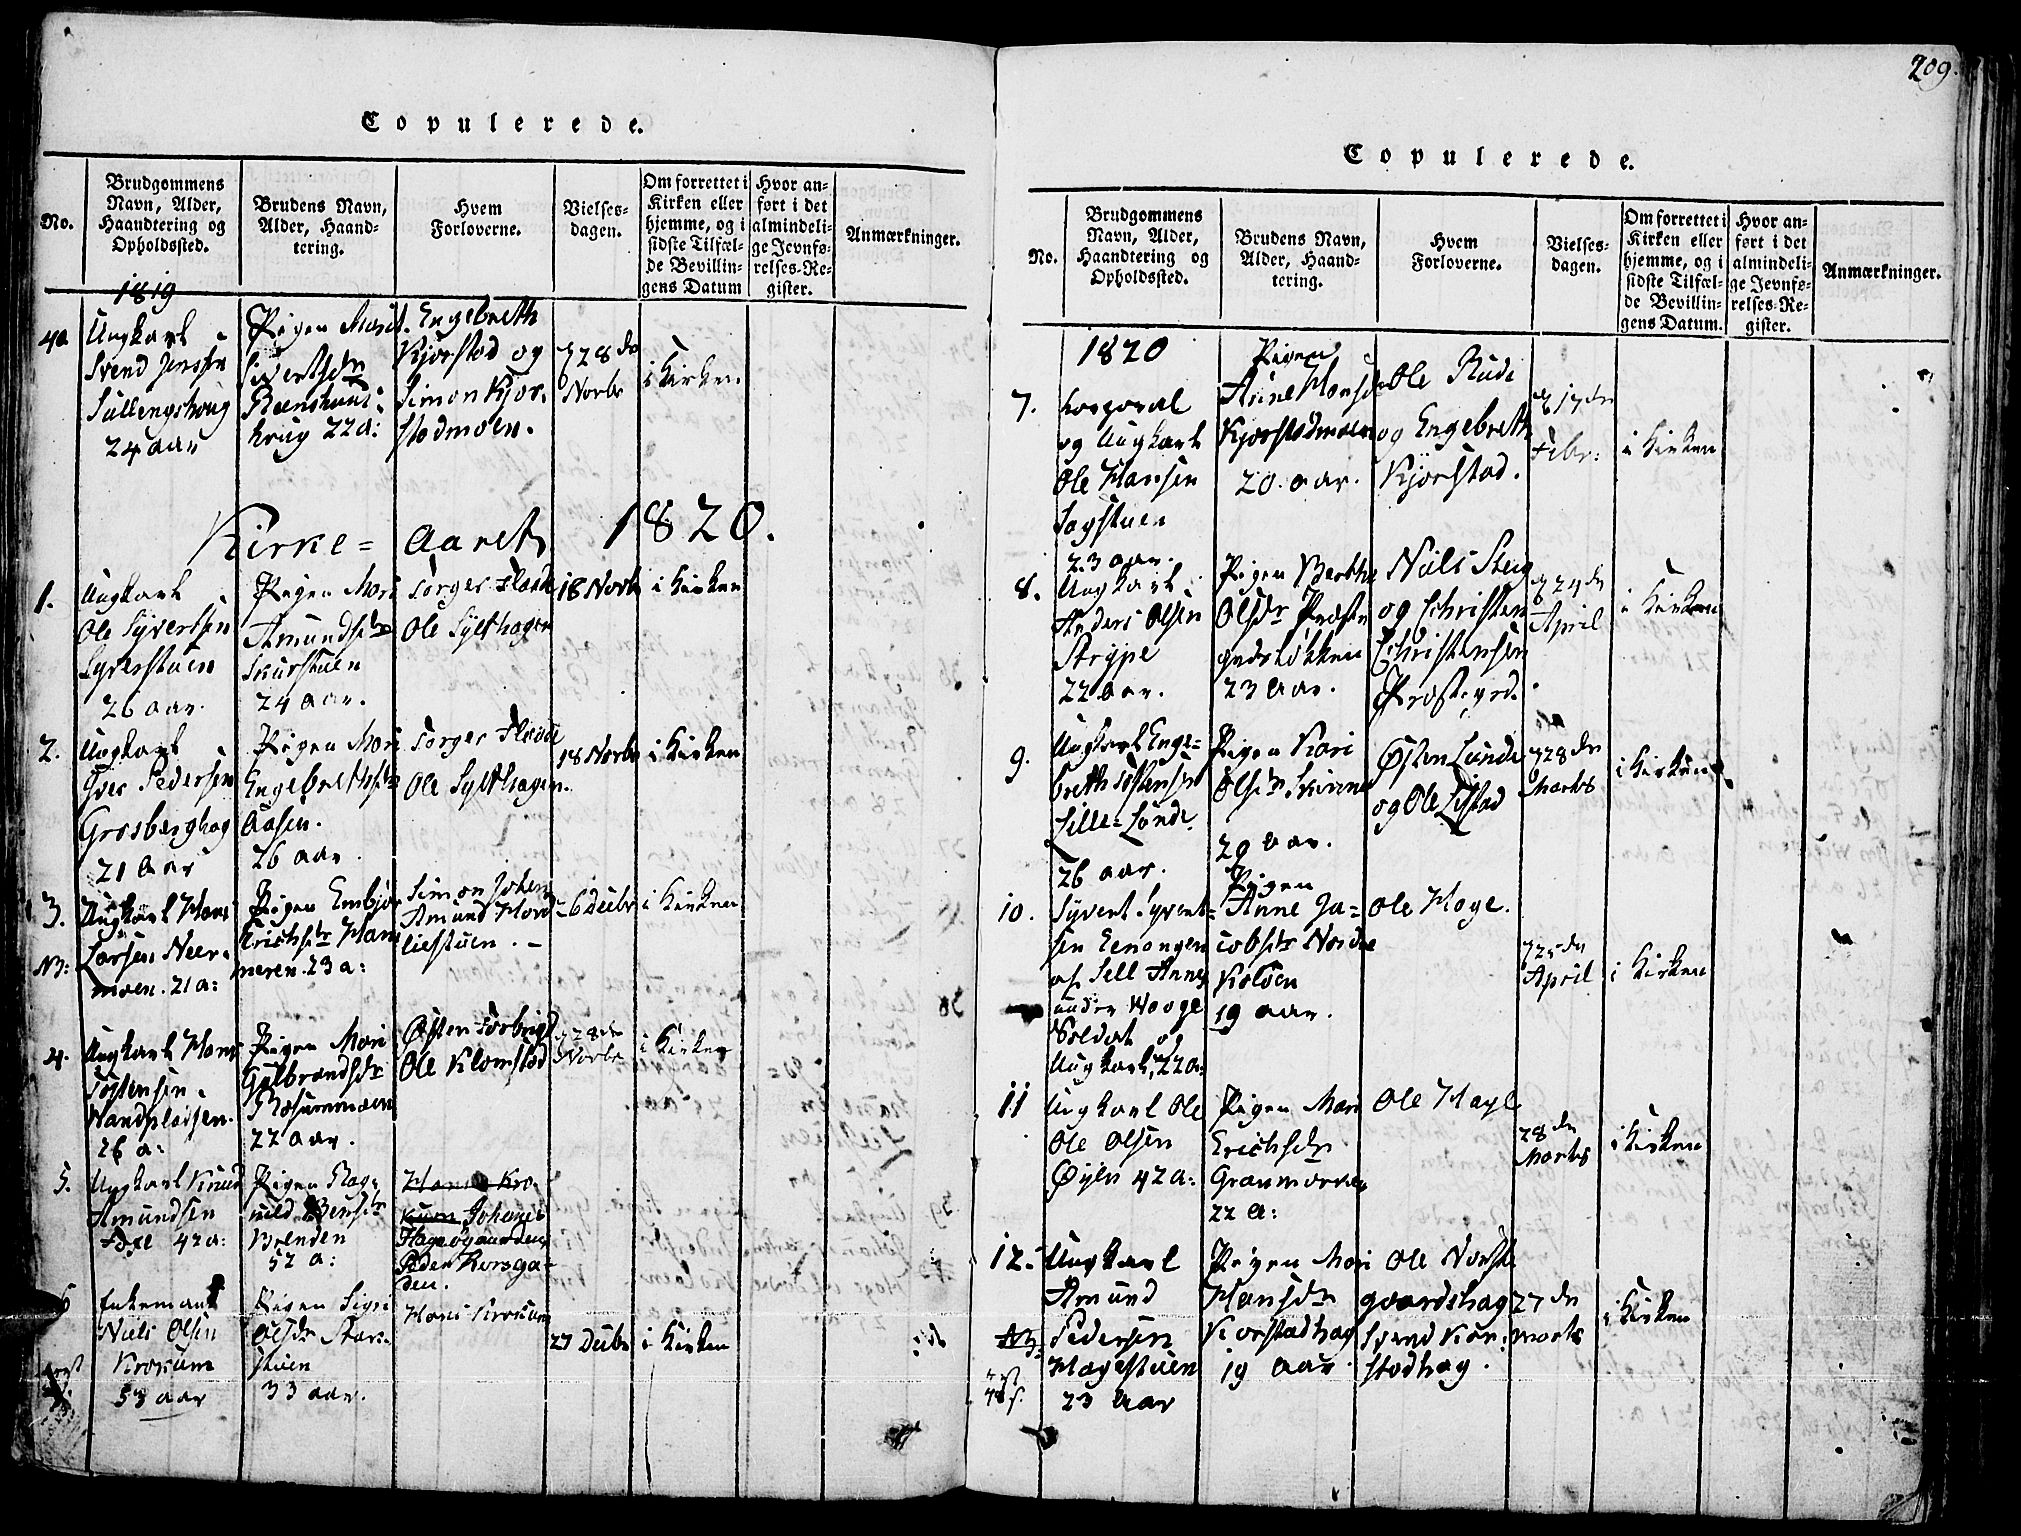 209.
Copulerede.
No.
Brudgommens
Navn, Alder,
Haandtering og
Opholdssted.
Brudens Navn,
Alder, Haand-
tering.
Hvem
Forloverne.
Vielses-
dagen.
Om forrettet i
Kirken eller
hjemme, og i
sidste Tilfæl-
de Bevillin-
gens Datum
Hvor an-
ført i det
almindeli-
ge Jevnfø-
relses-Re-
gister.
Anmærkninger.
1819
40
Ungkarl
Svend
24 aar
Pigen Marit
22 a:
Engebreth
Kjorstad og
Simon Kjor-
stadmoen.
28de
Novbr
i Kirken
Kirke= Aaret 1820.
1.
Ungkarl
Ole Syversen
Syverstuen
26 aar.
Pigen Mari
Amundsdr
24 aar.
Ole Sylthagen
18 Novbr
i Kirken
2.
Ungkarl
Iver Pedersen
Grosberghag
21 Aar
Pigen Mari
Engebrethsdr
Aasen.
26 aar.
Ole Sylthagen.
18 Novbr
i Kirken
3.
Ungkarl Hans
Larsen Neer-
moen. 21 a:
Pigen
Erichsdr
23 a:
Simon
Amund
26 Decbr
i Kirken
4.
Ungkarl Hans
Tostensen
26 a:
Pigen Mari
Gulbrandsdr
22 aar.
Østen
Ole Klomstad
28de
Novbr
i Kirken
5.
Ungkarl Knud
Amundsen
42 a:
Pigen Rag-
Brenden
52 a:
Johanes
Peder Korsga-
den.
6
Enkemand
Niels Olsen
Krokum
53 aar
Pigen Sigri
Olsdr
stuen
33 aar.
Hans Krokum
27 Decbr
i Kirken
Copulerede.
No.
Brudgommens
Navn, Alder,
Haandtering og
Opholdssted.
Brudens Navn,
Alder, Haand-
tering.
Hvem
Forloverne.
Vielses-
dagen.
Om forrettet i
Kirken eller
hjemme, og i
sidste Tilfæl-
de Bevillin-
gens Datum.
Hvor an-
ført i det
almindeli-
ge Jevnfø-
relses-Re-
gister.
Anmærkninger.
1820
7.
Korporal
og Ungkarl
Ole Hansen
Sagstuen
23 aar.
Pigen
Anne Hansdr
Kjorstadmoen
20 aar.
Ole Rude
og Engebreth
Kjorstad.
17de
Febr:
i Kirken
8.
Ungkarl
Anders Olsen
Strype
22 aar.
Pigen Berthe
Olsdr Præste-
gardsløkken
23 Aar.
Niels Steig
og Christen
Christensen
24de
April
i Kirken
9.
Ungkarl Enge-
breth Tostensen
Lille=Lunde
26 aar.
Pigen Kari
Olsdr
20 aar.
Østen Lunde
og Ole Listad
28de
Marts
i Kirken
10.
Syvert Syvert-
sen
af Sell Annex
under Waage
Soldat og
Ungkarl, 22 a:
Pigen
Anne Ja-
cobsdr Nordre
Koloen
19 aar.
Ole Hage.
25de
April
i Kirken
11
Ungkarl Ole
Ole Olsen
Øyen 42 a:
Pigen Mari
Erichsdr
22 a:
Ole Hage
28de
Marts
i Kirken
12.
Ungkarl
Amund
Pedersen
Hagestuen
23 Aar
Pigen Mari
Hansdr
Kiorstadhag
19 aar.
Ole Nordst
gaardshag
Svend Kior-
stadhag.
27de
Marts
i Kirken